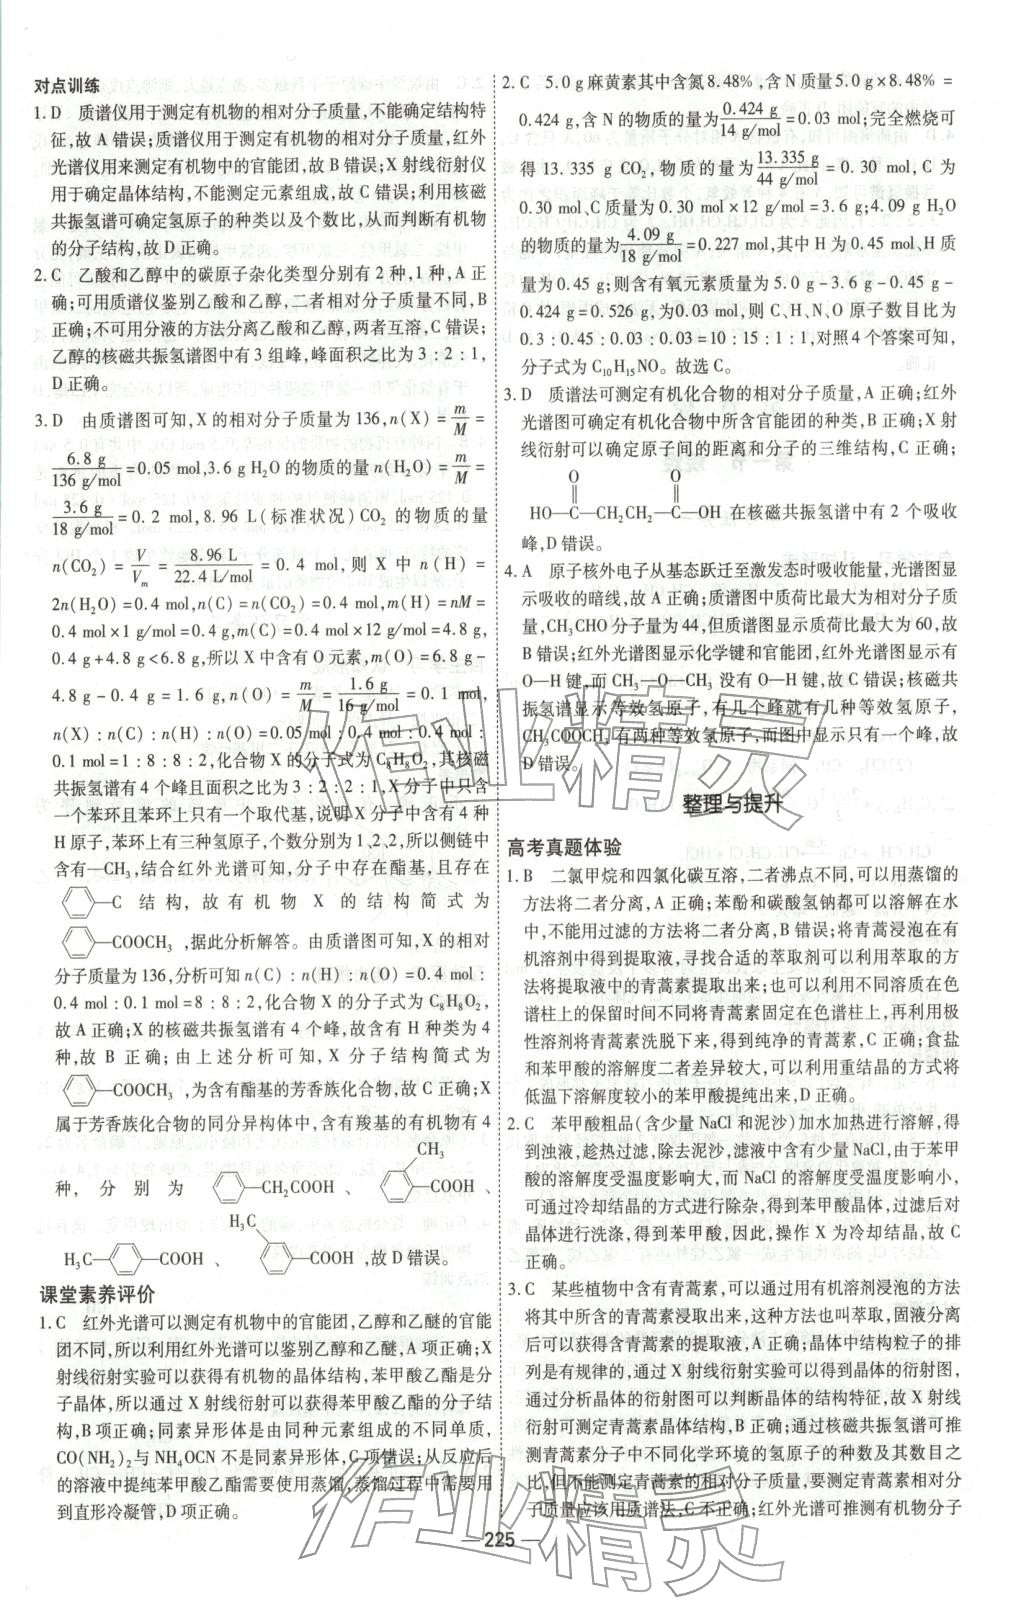 对点训练
1. D　质谱仪用于测定有机物的相对分子质量,不能确定结构特
征,故 A 错误;质谱仪用于测定有机物的相对分子质量,红外
光谱仪用来测定有机物中的官能团,故 B 错误;X 射线衍射仪
用于确定晶体结构,不能测定元素组成,故 C 错误;利用核磁
共振氢谱可确定氢原子的种类以及个数比,从而判断有机物
的分子结构,故 D 正确。
2. C　乙酸和乙醇中的碳原子杂化类型分别有 2 种,1 种,A 正
确;可用质谱仪鉴别乙酸和乙醇,二者相对分子质量不同,B
正确;不可用分液的方法分离乙酸和乙醇,两者互溶,C 错误;
乙醇的核磁共振氢谱图中有 3 组峰,峰面积之比为 3∶2∶1,
D 正确。
3. D　由质谱图可知,X 的相对分子质量为 136,n(X) = m/M =
6.8 g/136 g/mol = 0.05 mol,3.6 g H₂O 的物质的量 n(H₂O) = m/M =
3.6 g/18 g/mol = 0.2 mol,8.96 L(标准状况)CO₂ 的物质的量
n(CO₂) = V/Vm = 8.96 L/22.4 L/mol = 0.4 mol,则 X 中 n(H) =
2n(H₂O) = 0.4 mol,n(C) = n(CO₂) = 0.4 mol,m(H) = nM =
0.4 mol×1 g/mol = 0.4 g,m(C) = 0.4 mol×12 g/mol = 4.8 g,
0.4 g+4.8 g<6.8 g,所以 X 中含有 O 元素,m(O) = 6.8 g-
4.8 g - 0.4 g = 1.6 g,n(O) = m/M = 1.6 g/16 g/mol = 0.1 mol,
n(X)∶n(C)∶n(H)∶n(O) = 0.05∶0.4 mol∶0.4 mol∶
0.1 mol = 1∶8∶8∶2,化合物 X 的分子式为 C₈H₈O₂,其核磁
共振氢谱有 4 个峰且面积之比为 3∶2∶2∶1,X 分子中只含
一个苯环且苯环上只有一个取代基,说明 X 分子中含有 4 种
H 原子,苯环上有三种氢原子,个数分别为 1,2,2,所以侧链中
含有—CH₃,结合红外光谱可知,分子中存在酯基,且只存在
—C 结构,故有机物 X 的结构简式为
—COOCH₃ ,据此分析解答。由质谱图可知,X 的相对
分子质量为 136,分析可知 n(C)∶n(H)∶n(O) = 0.4 mol∶
0.4 mol∶0.1 mol = 8∶8∶2,化合物 X 的分子式为 C₈H₈O₂,
故 A 正确;X 的核磁共振氢谱有 4 个峰,故含有 H 种类为 4
种,故 B 正确;由上述分析可知,X 分子结构简式为
—COOCH₃ ,为含有酯基的芳香族化合物,故 C 正确;X
属于芳香族化合物的同分异构体中,含有羧基的有机物有 4
CH₃
种,分别为 —CH₂COOH 、 —COOH 、
H₃C
H₃C— —COOH 、 —COOH ,故 D 错误。
课堂素养评价
1. C　红外光谱可以测定有机物中的官能团,乙醇和乙醚的官能
团不同,所以利用红外光谱可以鉴别乙醇和乙醚,A 项正确;X
射线衍射实验可以获得有机物的晶体结构,苯甲酸乙酯是分
子晶体,所以通过 X 射线衍射可以获得苯甲酸乙酯的分子结
构,B 项正确;同素异形体是由同种元素组成的不同单质,
CO(NH₂)₂ 与 NH₄OCN 不是同素异形体,C 项错误;从反应后
的溶液中提纯苯甲酸乙酯需要使用蒸馏,蒸馏过程中需要用
到直形冷凝管,D 项正确。
2. C　5.0 g 麻黄素其中含氮 8.48%,含 N 质量 5.0 g×8.48% =
0.424 g,含 N 的物质的量为 0.424 g/14 g/mol = 0.03 mol;完全燃烧可
得 13.335 g CO₂,物质的量为 13.335 g/44 g/mol = 0.30 mol,C 为
0.30 mol、C 质量为 0.30 mol×12 g/mol = 3.6 g;4.09 g H₂O
的物质的量为 4.09 g/18 g/mol = 0.227 mol,其中 H 为 0.45 mol、H 质
量为 0.45 g;则含有氧元素质量为 5.0 g-3.6 g-0.45 g-
0.424 g = 0.526 g,为 0.03 mol;则 C、H、N、O 原子数目比为
0.3∶0.45∶0.03∶0.03 = 10∶15∶1∶1,对照 4 个答案可知,
分子式为 C₁₀H₁₅NO。故选 C。
3. D　质谱法可测定有机化合物的相对分子质量,A 正确;红外
光谱图可确定有机化合物中所含官能团的种类,B 正确;X 射
线衍射可以确定原子间的距离和分子的三维结构,C 正确;
O　O
HO—C—CH₂CH₂—C—OH 在核磁共振氢谱中有 2 个吸收
峰,D 错误。
4. A　原子核外电子从基态跃迁至激发态时吸收能量,光谱图显
示吸收的暗线,故 A 正确;质谱图中质荷比最大为相对分子质
量,CH₃CHO 分子量为 44,但质谱图显示质荷比最大为 60,故
B 错误;红外光谱图显示化学键和官能团,红外光谱图显示有
O—H 键,而 CH₃—O—CH₃ 没有 O—H 键,故 C 错误;核磁共
振氢谱显示等效氢原子,有几个峰就有几种等效氢原子,
CH₃COOCH₃ 有两种等效氢原子,而图中显示只有一个峰,故
D 错误。
整理与提升
高考真题体验
1. B　二氯甲烷和四氯化碳互溶,二者沸点不同,可以用蒸馏的
方法将二者分离,A 正确;苯酚和碳酸氢钠都可以溶解在水
中,不能用过滤的方法将二者分离,B 错误;将青蒿浸泡在有
机溶剂中得到提取液,寻找合适的萃取剂可以利用萃取的方
法将提取液中的青蒿素提取出来;也可以利用不同溶质在色
谱柱上的保留时间不同将青蒿素固定在色谱柱上,再利用极
性溶剂将青蒿素洗脱下来,得到纯净的青蒿素,C 正确;食盐
和苯甲酸的溶解度二者差异较大,可以利用重结晶的方式将
低温下溶解度较小的苯甲酸提纯出来,D 正确。
2. C　苯甲酸粗品(含少量 NaCl 和泥沙)加水加热进行溶解,得
到浊液,趁热过滤,除去泥沙,滤液中含有少量 NaCl,由于苯甲
酸的溶解度受温度影响大,而 NaCl 的溶解度受温度影响小,
可通过冷却结晶的方式进行除杂,得到苯甲酸晶体,过滤后对
晶体进行洗涤,得到苯甲酸,因此,操作 X 为冷却结晶,故 C
正确。
3. C　某些植物中含有青蒿素,可以通过用有机溶剂浸泡的方法
将其中所含的青蒿素浸取出来,这种方法也叫萃取,固液分离
后可以获得含有青蒿素的提取液,A 正确;晶体中结构粒子的排
列是有规律的,通过 X 射线衍射实验可以得到晶体的衍射图,
通过分析晶体的衍射图可以判断晶体的结构特征,故 X 射线
衍射可测定青蒿素晶体的结构,B 正确;通过核磁共振氢谱可推
测青蒿素分子中不同化学环境的氢原子的种数及其数目之
比,但不能测定青蒿素的相对分子质量,要测定青蒿素相对分
子质量应该用质谱法,C 不正确;红外光谱可推测有机物分子
— 225 —
作业精灵
作业精灵